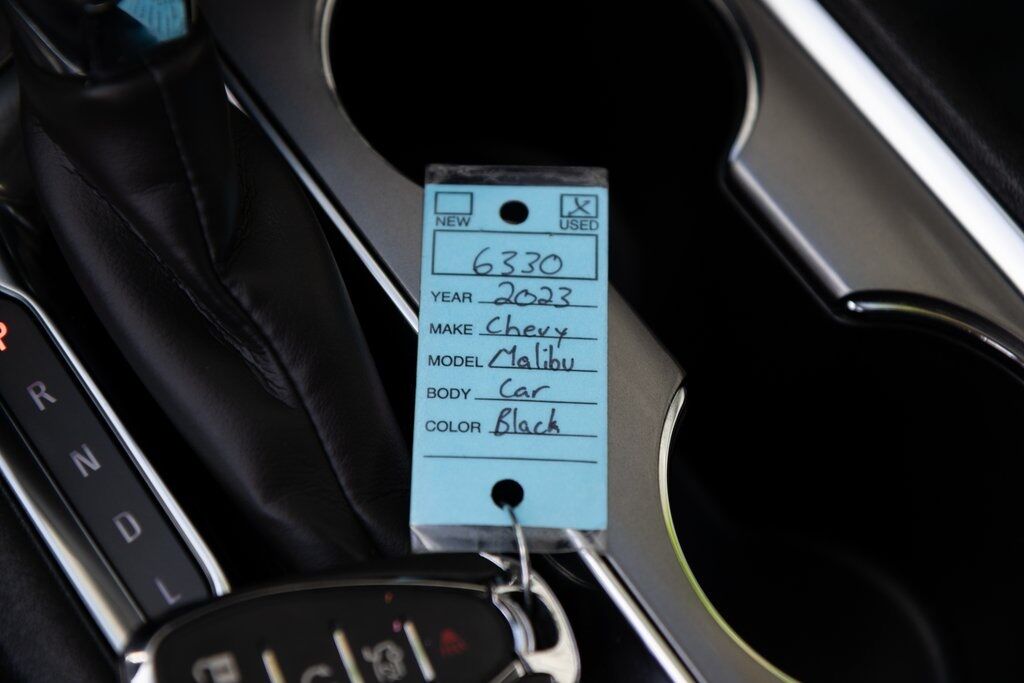 NEW USED
6330
YEAR 2023
MAKE Chevy
MODEL Malibu
BODY Car
COLOR Black
P
R
N
D
L